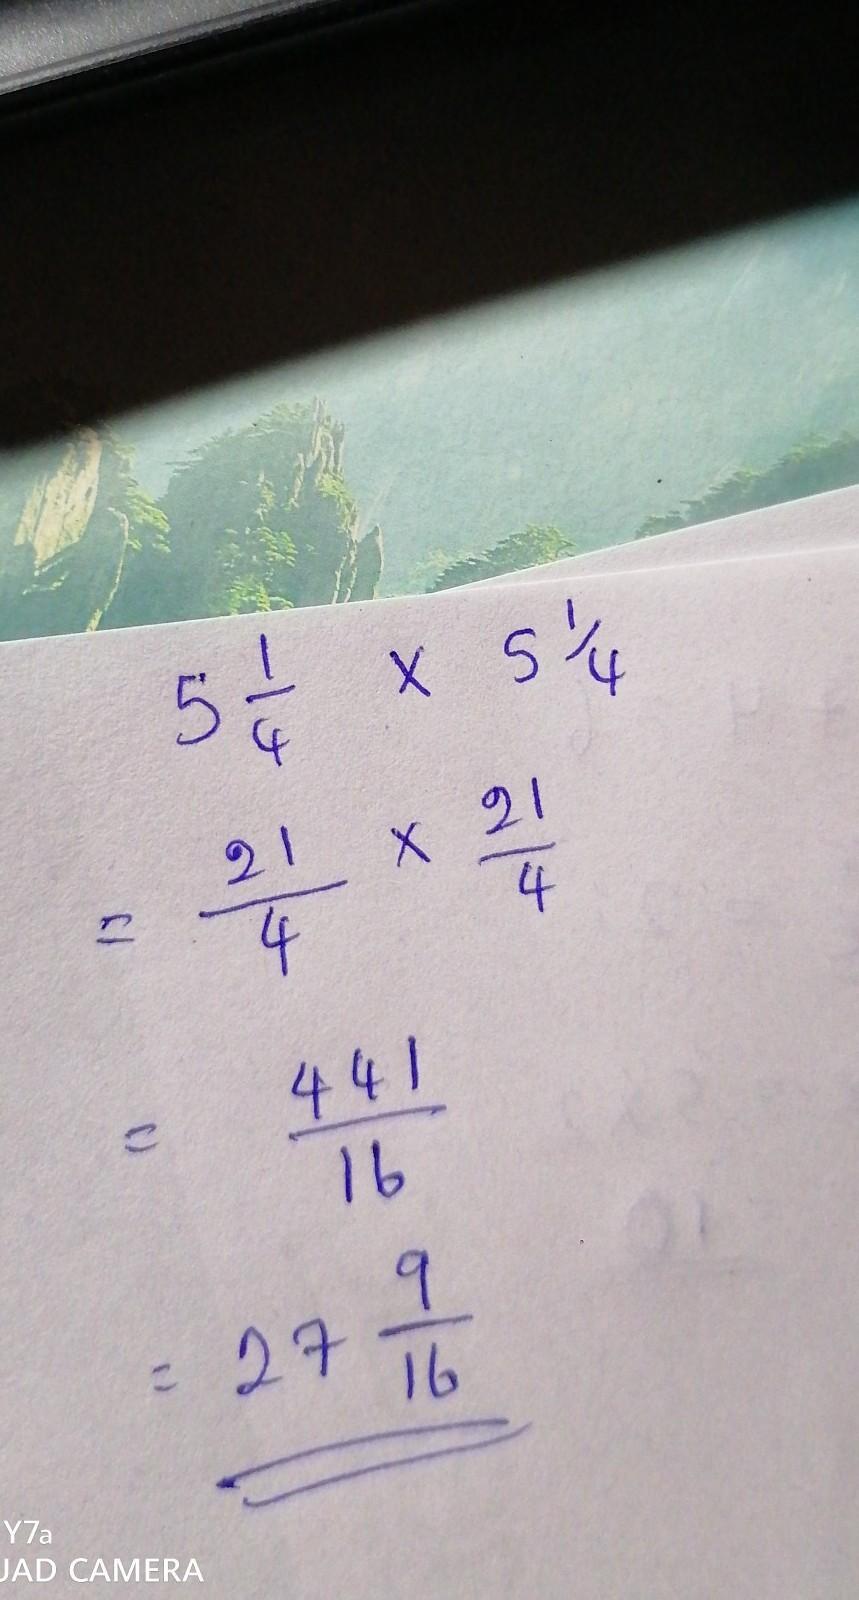 5 1/4 × 5 1/4
= 21/4 × 21/4
= 441/16
= 27 9/16
Y7a
UAD CAMERA